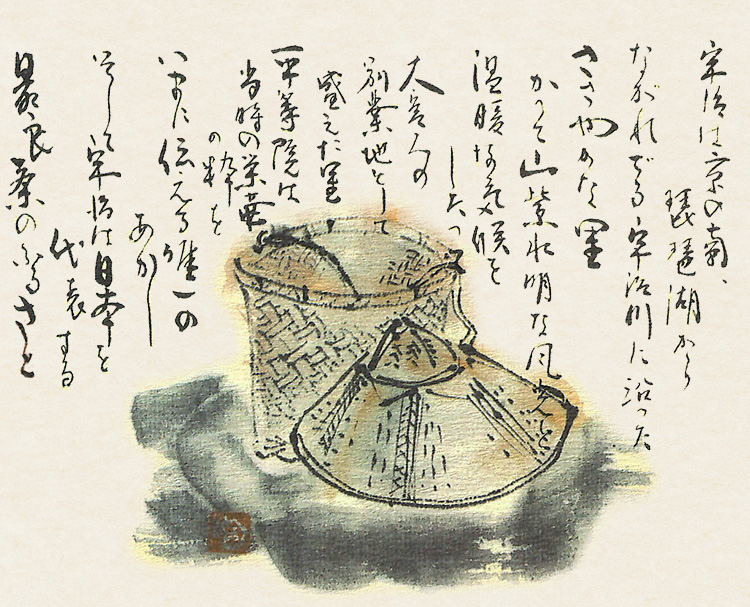 宇治は京の南、
琵琶湖から
ながれでる宇治川に沿った
ささやかな里
かつて山紫水明な風光と
温暖な気候を
したって
大宮人の
別業地として
盛えた里
平等院は
当時の栄華
の粋を
いまに伝える唯一の
あかし
そして宇治は日本を
代表する
最良茶のふるさと